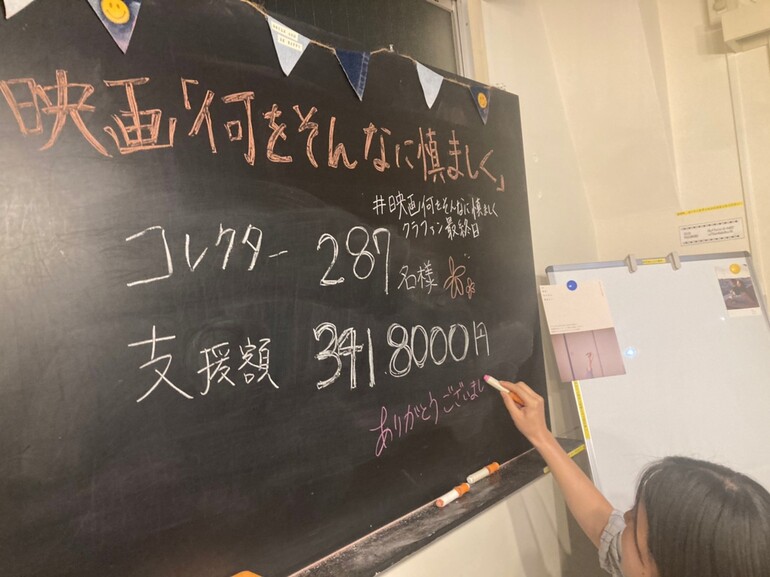 映画「何をそんなに慎ましく」
#映画何をそんなに慎ましく
クラファン最終日
コレクター 287名様
支援額 341.8000円
ありがとうございまし